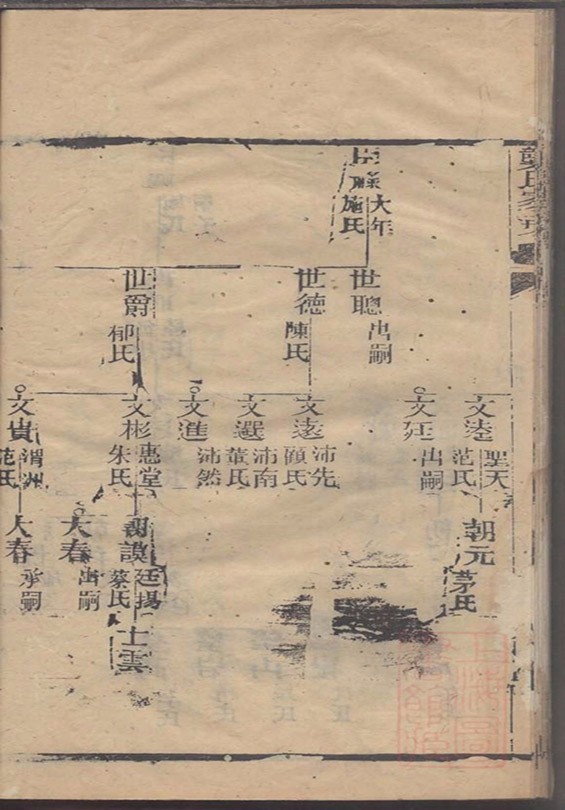 大年
施氏
世聰
出嗣
世德
陳氏
世爵
郁氏
聖天
范氏
文廷
出嗣
沛先
顧氏
文選
沛南
董氏
文進
沛然
文彬
惠堂
朱氏
文貴
渭洲
范氏
朝元
茅氏
朝謨
廷揚
蔡氏
大春
出嗣
大春
承嗣
士雲